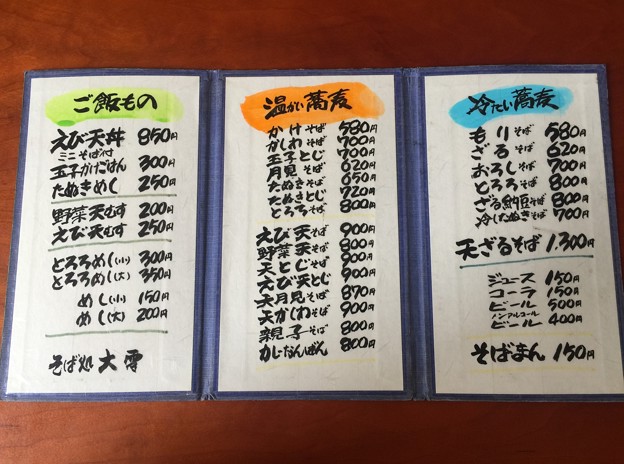 ご飯もの
えび天丼 850円
ミニそば付
玉子かけごはん 300円
たぬきめし 250円
野菜天むす 200円
えび天むす 250円
とろろめし(小) 300円
とろろめし(大) 350円
めし(小) 150円
めし(大) 200円
そば処 大雪
温かい蕎麦
かけそば 580円
かしわそば 700円
玉子とじ 700円
月見そば 620円
たぬきそば 650円
たぬきとじ 720円
とろろそば 800円
えび天そば 900円
野菜天そば 800円
天とじそば 900円
えび天とじ 900円
天月見そば 870円
天かしわそば 900円
親子そば 800円
かしなんばん 800円
冷たい蕎麦
もりそば 580円
ざるそば 620円
おろしそば 700円
とろろそば 800円
ざる納豆そば 800円
冷したぬきそば 700円
天ざるそば 1,300円
ジュース 150円
コーラ 150円
ビール 500円
ノンアルコール
ビール 400円
そばまん 150円